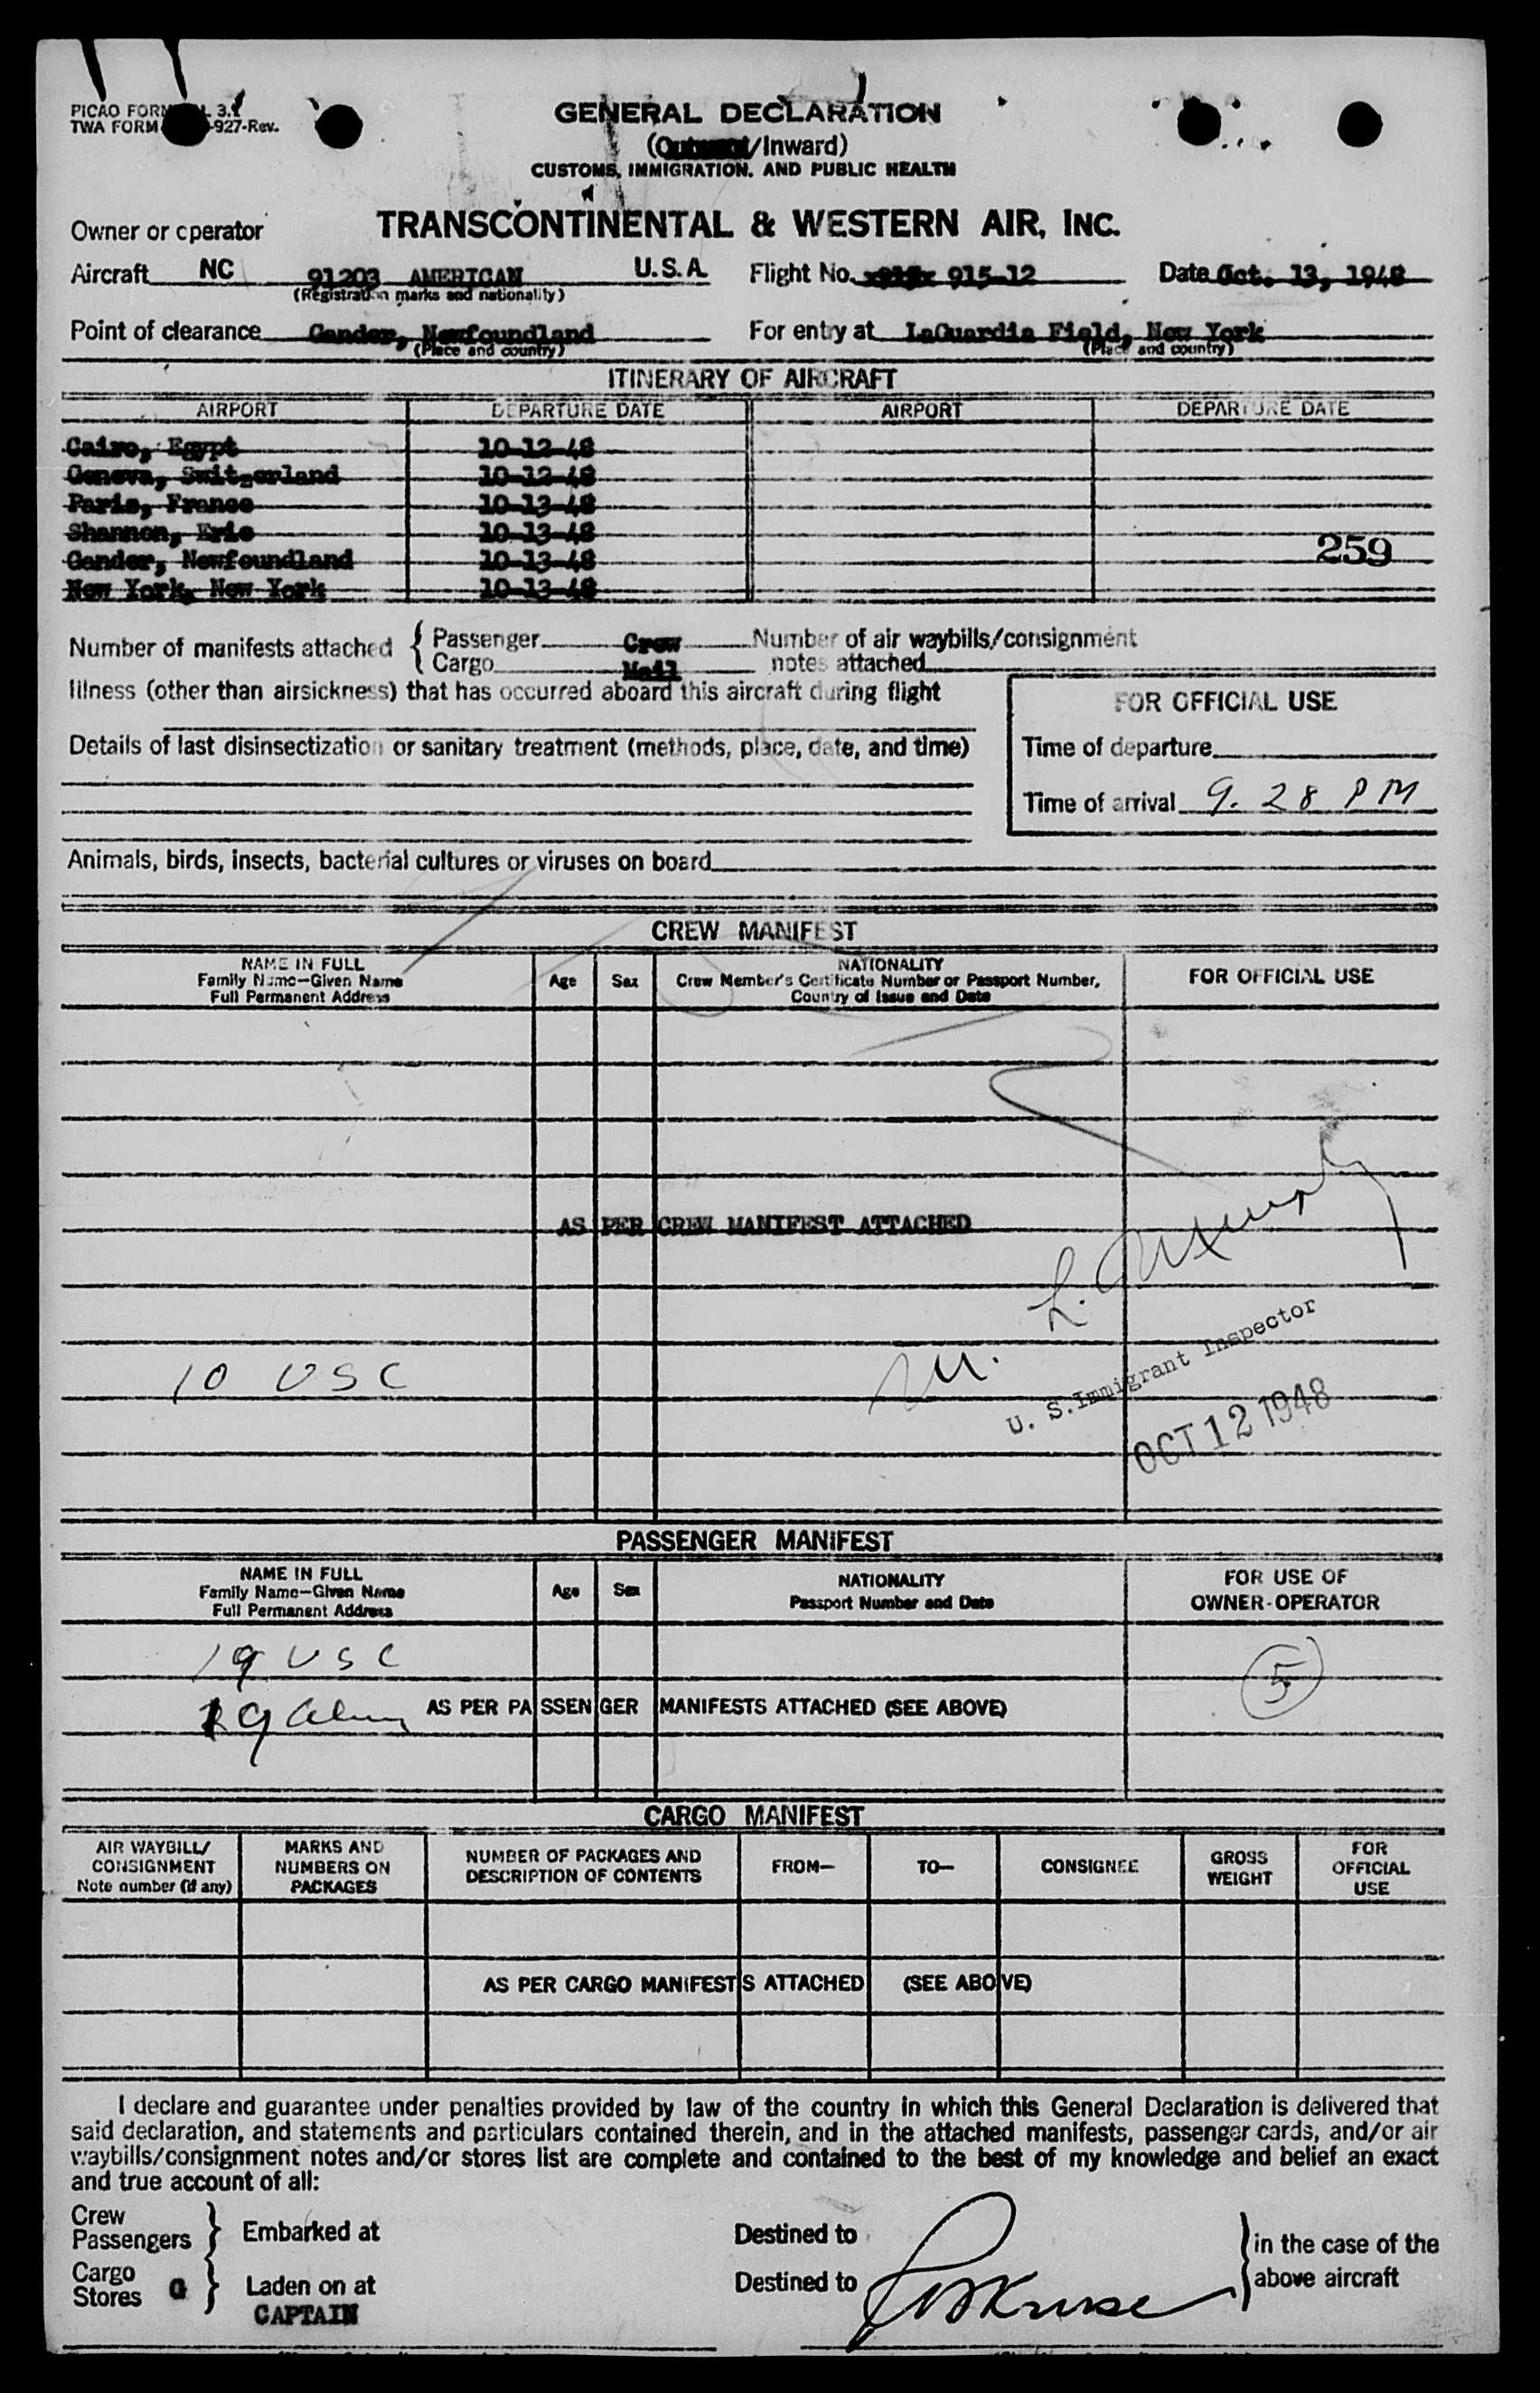 PICAO FORM 3.1
TWA FORM -927-Rev.
GENERAL DECLARATION
(Outward/Inward)
CUSTOMS, IMMIGRATION, AND PUBLIC HEALTH
Owner or operator TRANSCONTINENTAL & WESTERN AIR, INC.
Aircraft NC 91203 AMERICAN U.S.A. Flight No. 915-12 Date Oct. 13, 1948
(Registration marks and nationality)
Point of clearance Gander, Newfoundland For entry at LaGuardia Field, New York
(Place and country) (Place and country)
ITINERARY OF AIRCRAFT
AIRPORT DEPARTURE DATE AIRPORT DEPARTURE DATE
Cairo, Egypt 10-12-48
Geneva, Switzerland 10-12-48
Paris, France 10-13-48
Shannon, Erie 10-13-48
Gander, Newfoundland 10-13-48
259
New York, New York 10-13-48
Number of manifests attached { Passenger Crew Number of air waybills/consignment
Cargo Mail notes attached
Illness (other than airsickness) that has occurred aboard this aircraft during flight
FOR OFFICIAL USE
Details of last disinsectization or sanitary treatment (methods, place, date, and time)
Time of departure
Time of arrival 9.28 PM
Animals, birds, insects, bacterial cultures or viruses on board
CREW MANIFEST
NAME IN FULL
Family Name—Given Name
Full Permanent Address
Age Sex
NATIONALITY
Crew Member's Certificate Number or Passport Number,
Country of Issue and Date
FOR OFFICIAL USE
AS PER CREW MANIFEST ATTACHED
10 USC
U. S. Immigrant Inspector
OCT 12 1948
PASSENGER MANIFEST
NAME IN FULL
Family Name—Given Name
Full Permanent Address
Age Sex
NATIONALITY
Passport Number and Date
FOR USE OF
OWNER-OPERATOR
19 USC
5
AS PER PASSENGER MANIFESTS ATTACHED (SEE ABOVE)
CARGO MANIFEST
AIR WAYBILL/
CONSIGNMENT
Note number (if any)
MARKS AND
NUMBERS ON
PACKAGES
NUMBER OF PACKAGES AND
DESCRIPTION OF CONTENTS
FROM— TO— CONSIGNEE
GROSS
WEIGHT
FOR
OFFICIAL
USE
AS PER CARGO MANIFESTS ATTACHED (SEE ABOVE)
I declare and guarantee under penalties provided by law of the country in which this General Declaration is delivered that
said declaration, and statements and particulars contained therein, and in the attached manifests, passenger cards, and/or air
waybills/consignment notes and/or stores list are complete and contained to the best of my knowledge and belief an exact
and true account of all:
Crew
Passengers } Embarked at Destined to
Cargo
Stores } Laden on at Destined to
in the case of the
above aircraft
CAPTAIN